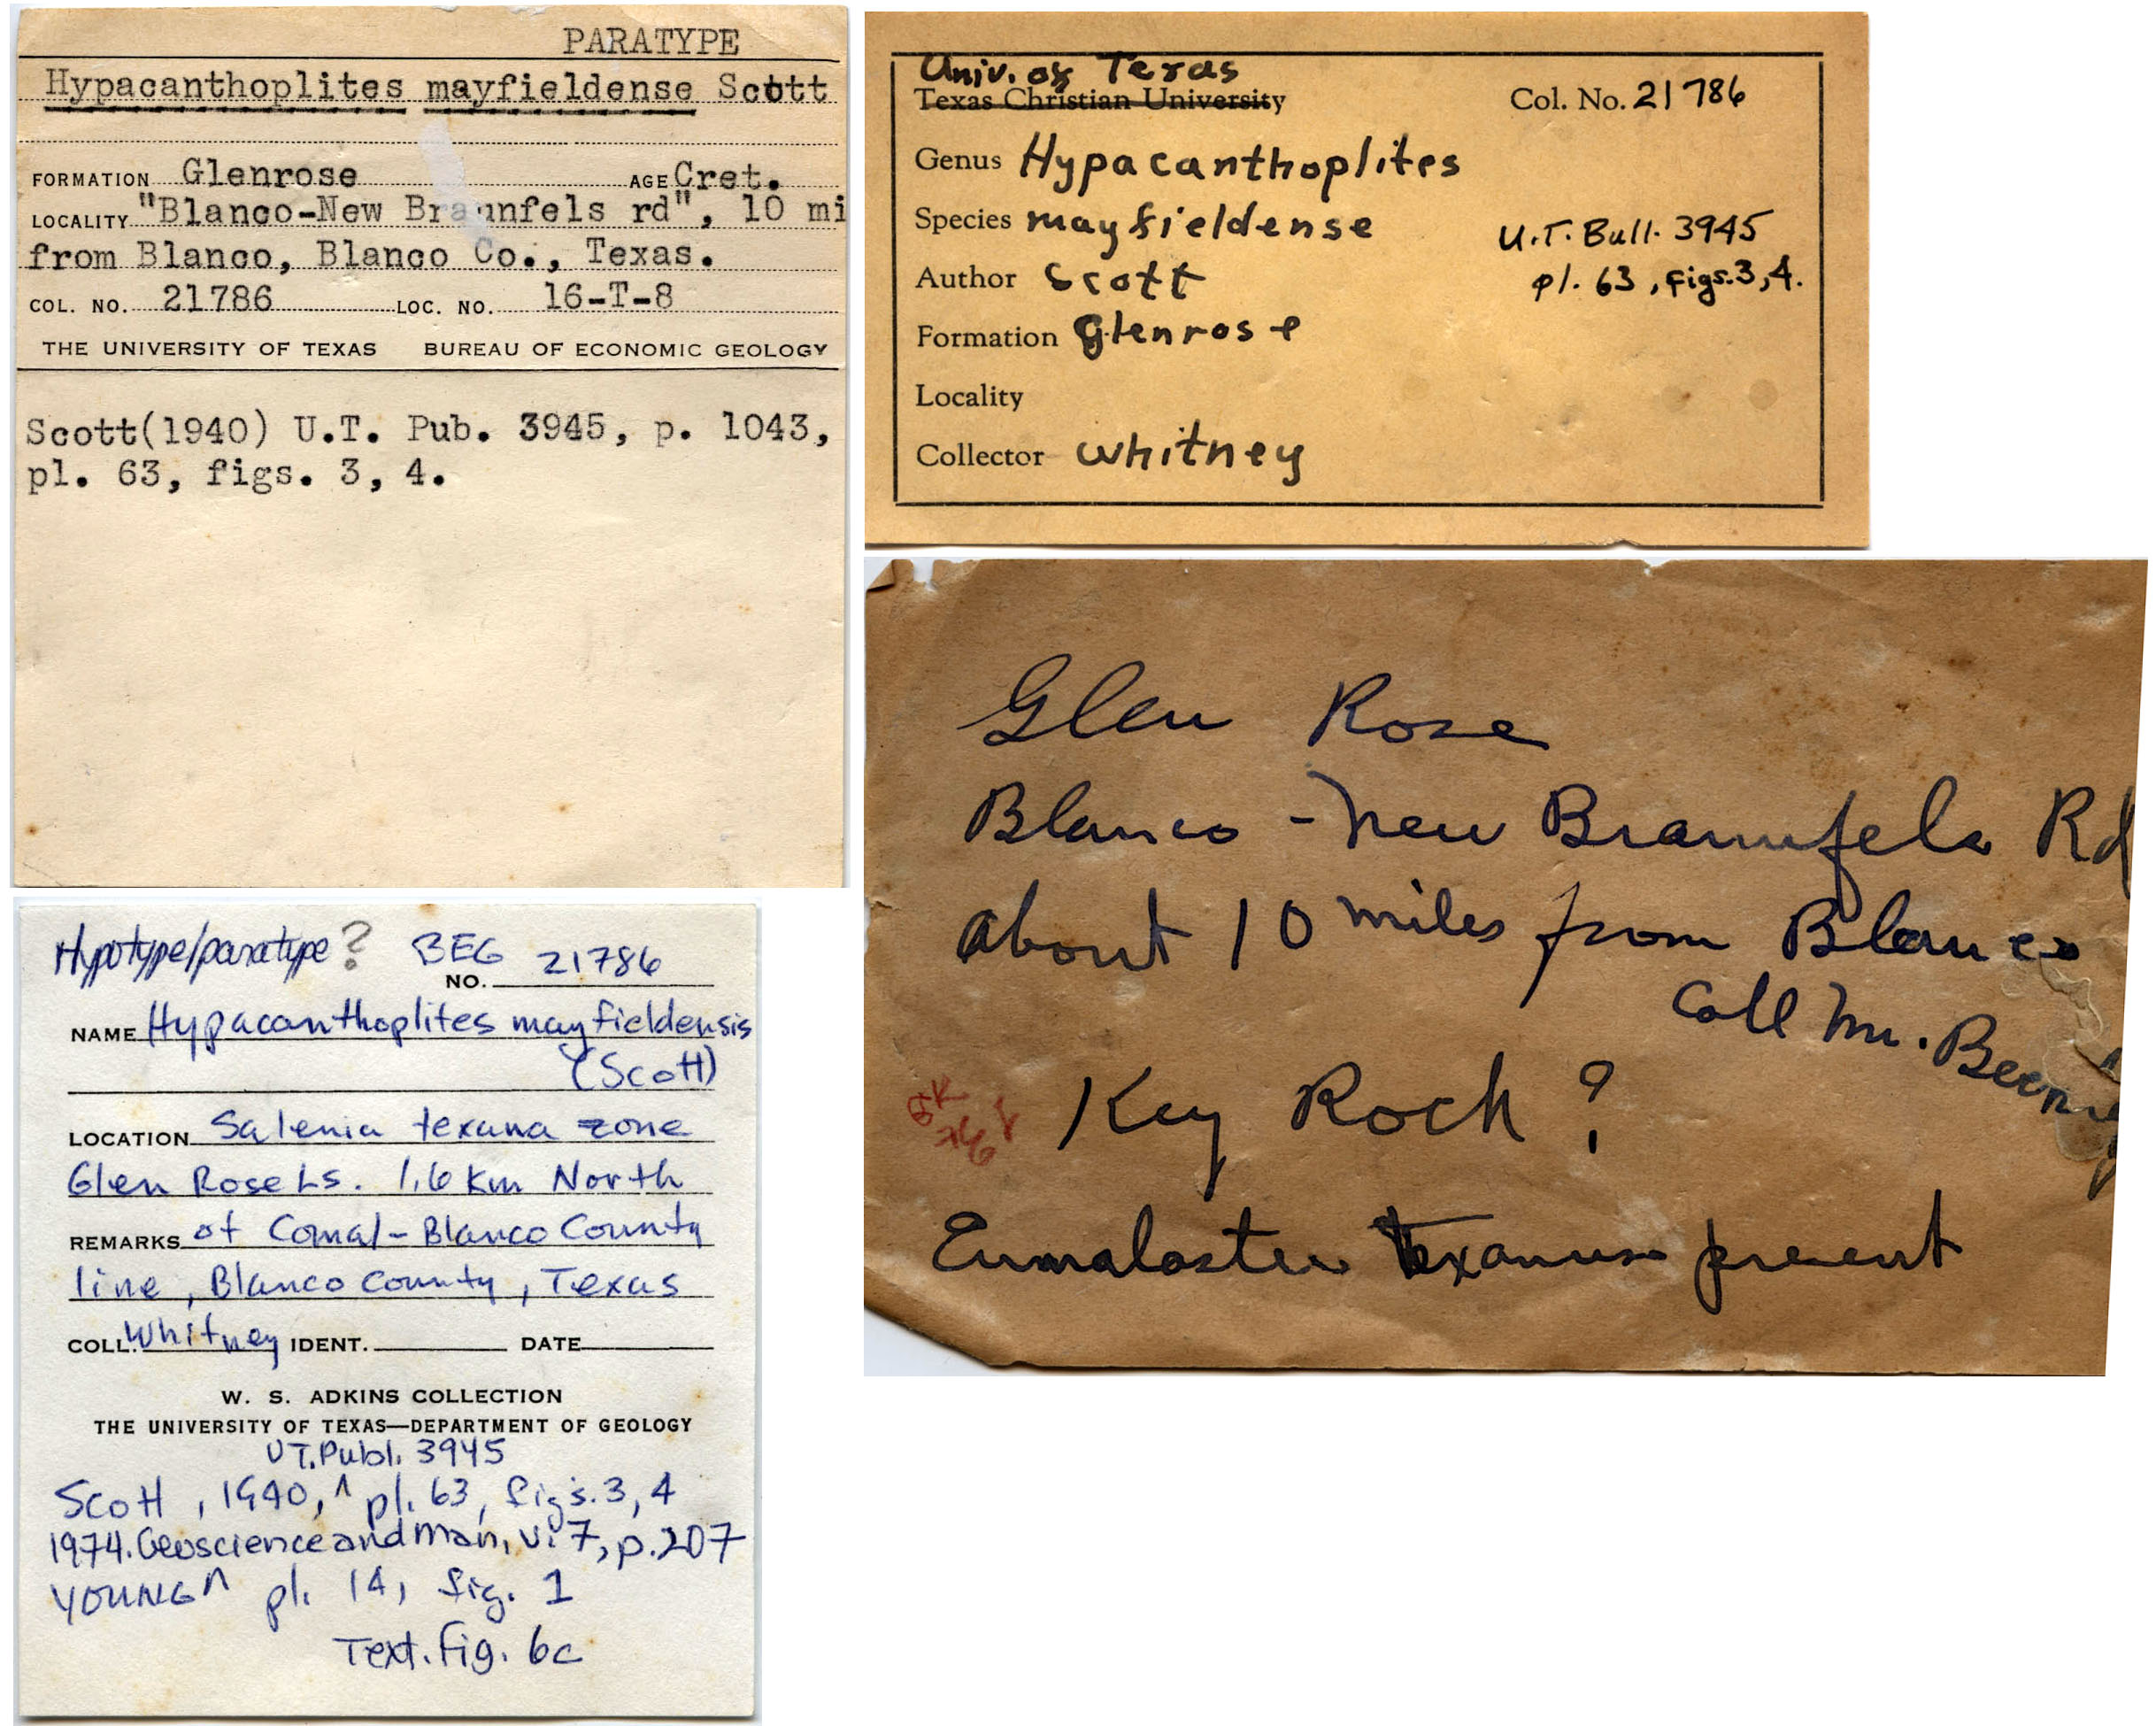 PARATYPE
Hypacanthoplites mayfieldense Scott
FORMATION Glenrose AGE Cret.
LOCALITY "Blanco-New Braunfels rd", 10 mi
from Blanco, Blanco Co., Texas.
COL. NO. 21786 LOC. NO. 16-T-8
THE UNIVERSITY OF TEXAS BUREAU OF ECONOMIC GEOLOGY
Scott(1940) U.T. Pub. 3945, p. 1043,
pl. 63, figs. 3, 4.
Univ. of Texas
Texas Christian University Col. No. 21786
Genus Hypacanthoplites
Species mayfieldense U.T. Bull. 3945
Author Scott pl. 63, figs. 3, 4.
Formation Glenrose
Locality
Collector Whitney
Glen Rose
Blanco - New Braunfels Rd
about 10 miles from Blanco
Coll Mr.
Key Rock ?
texanus present
Hypotype/paratype? BEG NO. 21786
NAME Hypacanthoplites mayfieldensis
(Scott)
LOCATION Salenia texana zone
Glen Rose Ls. 1.6 km North
REMARKS of Comal-Blanco County
line, Blanco County, Texas
COLL. Whitney IDENT. DATE
W. S. ADKINS COLLECTION
THE UNIVERSITY OF TEXAS—DEPARTMENT OF GEOLOGY
UT. Publ. 3945
Scott, 1940, ^ pl. 63, figs. 3, 4
1974. Geoscience and Man, v. 7, p. 207
YOUNG ^ pl. 14, fig. 1
Text. fig. 6c